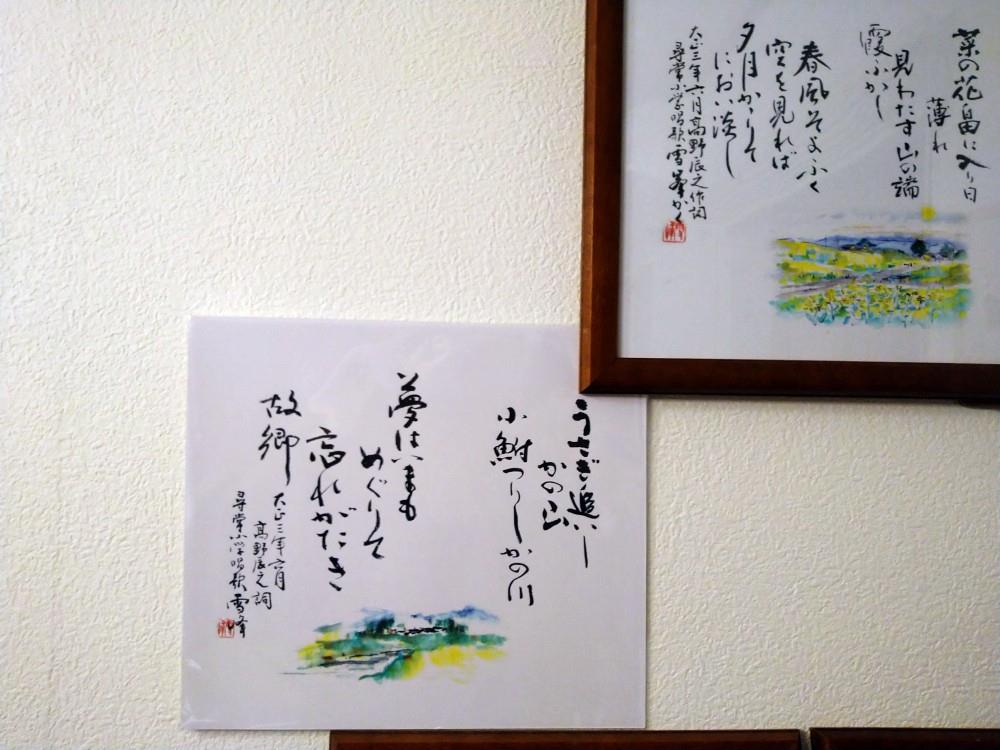 菜の花畠に入り日
薄れ
見わたす山の端
霞ふかし
春風そよふく
空を見れば
夕月かゝりて
におい淡し
大正三年六月高野辰之作詞
尋常小学唱歌雪峯かく
うさぎ追いし
かの山
小鮒つりしかの川
夢はいまも
めぐりて
忘れがたき
故郷
大正三年六月
高野辰之詞
尋常小学唱歌雪峰